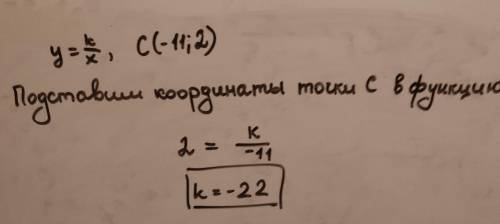 y = k/x, C(-11; 2)
Подставим координаты точки C в функцию
2 = k/-11
k = -22